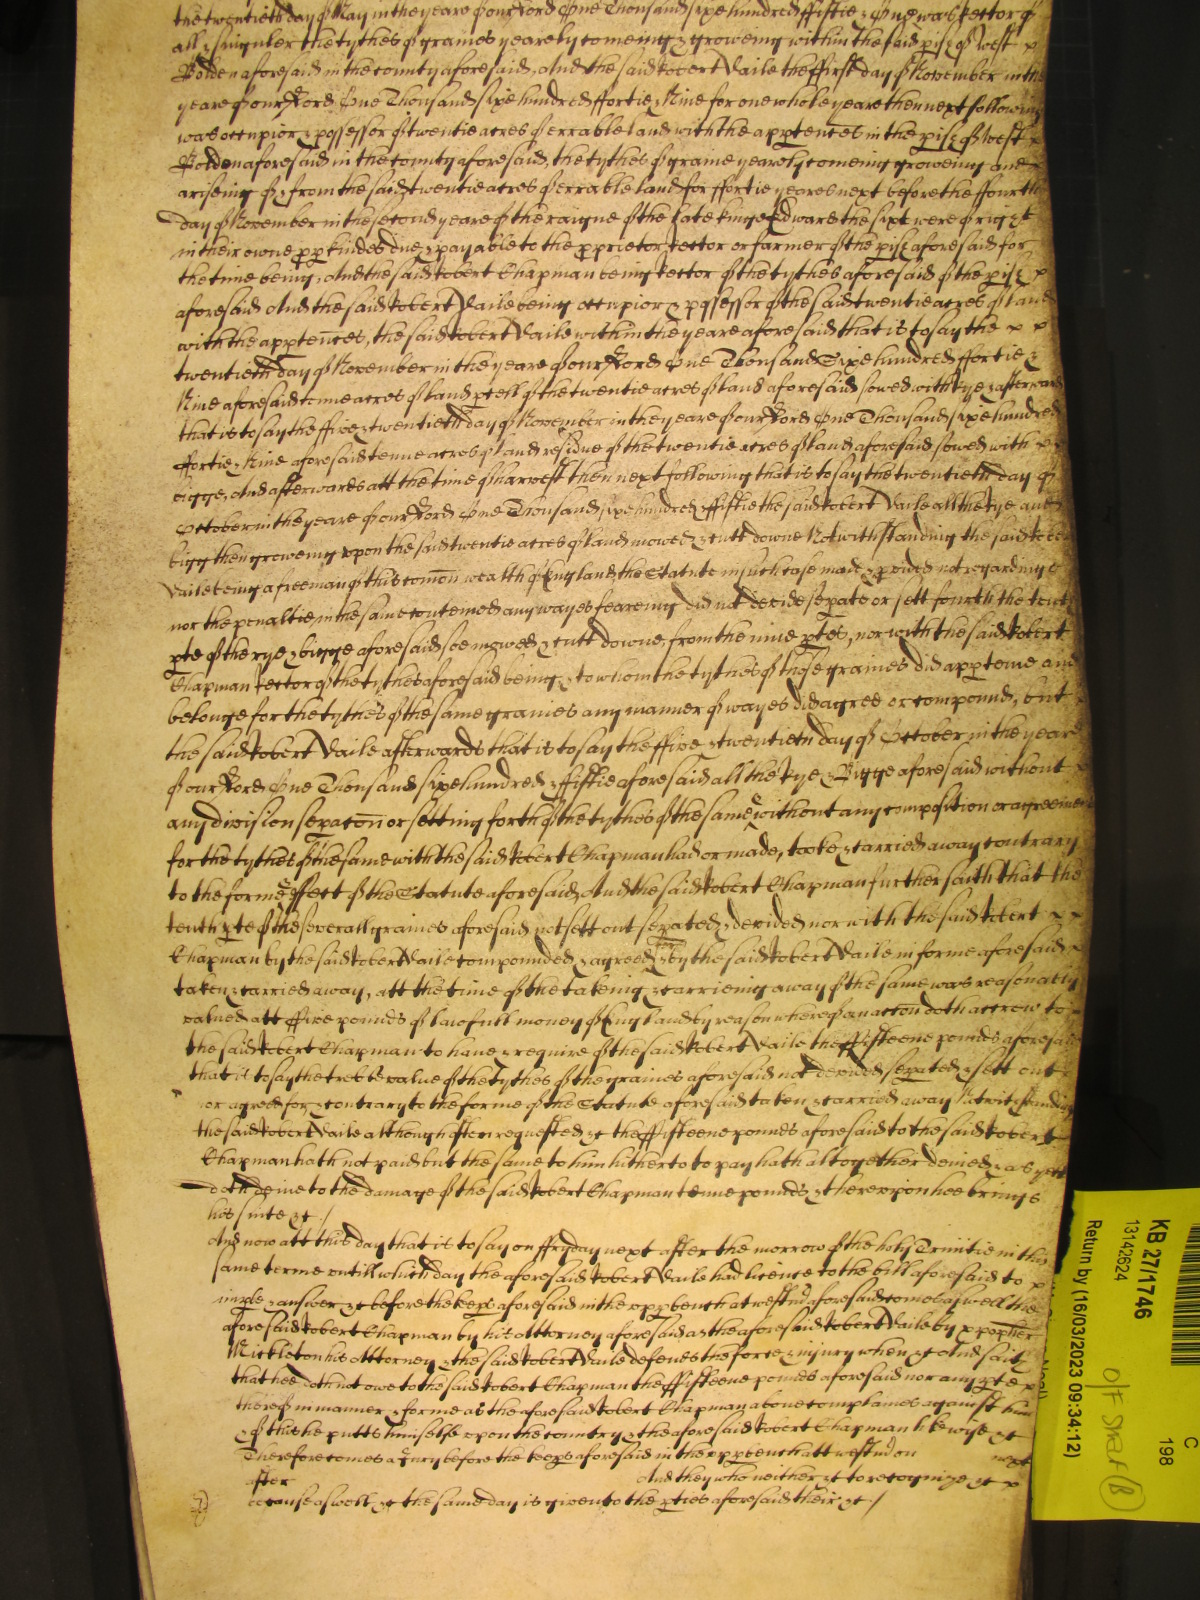 the twentieth day of May in the yeare of our Lord One Thousand sixe hundred fiftie & One was Rector of
all & singuler the tythes of graines yearely comeing & groweing within the said pish of West
Bolden aforesaid in the county aforesaid, And the said Robert Vaile the ffirst day of November in the
yeare of our Lord One Thousand sixe hundred ffortie & Nine for one whole yeare then next following
was occupior & possessor of twentie acres of errable land with the apptences in the pish of West
Bolden aforesaid in the county aforesaid, the tythes of graine yearely comeing groweing and
ariseing of & from the said twentie acres of errable land for ffortie yeares next before the ffourth
day of November in the second yeare of the raigne of the late kinge Edward the sixt were of right
in their owne pp kindes due & payable to the pprietor Rector or farmer of the pish aforesaid for
the time being, And the said Robert Chapman being Rector of the tythes aforesaid of the pish
aforesaid And the said Robert Vaile being occupior & possessor of the said twentie acres of land
with the apptences, the said Robert Vaile within the yeare aforesaid that is to say the
twentieth day of November in the yeare of our Lord One Thousand Sixe hundred ffortie &
Nine aforesaid tenne acres of land pcell of the twentie acres of land aforesaid sowed with rye & afterwards
that is to say the ffive & twentieth day of November in the yeare of our Lord One Thousand sixe hundred
ffortie & Nine aforesaid tenne acres of land residue of the twentie acres of land aforesaid sowed with
bigge, And afterwards att the time of harvest then next following that is to say the twentieth day of
October in the yeare of our Lord One Thousand sixe hundred & ffiftie the said Robert Vaile all the rye and
bigg then groweing upon the said twentie acres of land mowed & cutt downe Notwithstanding the said Robert
Vaile being a freeman of this comon wealth of England, the Statute in such case made & pvided not regarding
nor the penaltie in the same conteined any wayes feareing did not devide sepate or sett fourth the tenth
pte of the rye & bigge aforesaid soe mowed & cutt downe, from the nine ptes, nor with the said Robert
Chapman Rector of the tythes aforesaid being & to whom the tythes of those graines did apperteine and
belonge for the tythes of the same graines any manner of wayes did agree or compound, but
the said Robert Vaile afterwards that is to say the ffive & twentieth day of October in the yeare
of our Lord One Thousand sixe hundred & ffiftie aforesaid all the rye & Bigge aforesaid without
any division sepacon or setting forth of the tythes of the same & without any composition or agreement
for the tythes of the same with the said Robert Chapman had or made, tooke & carried away contrary
to the forme & effect of the Statute aforesaid, And the said Robert Chapman further saith that the
tenth pte of the severall graines aforesaid not sett out sepated & devided nor with the said Robert
Chapman by the said Robert Vaile compounded & agreed & by the said Robert Vaile in forme aforesaid
taken & carried away, att the time of the takeing & carrieing away of the same was reasonably
valued att ffive pounds of lawfull money of England by reason whereof an accon doth accrew to
the said Robert Chapman to have & require of the said Robert Vaile the ffifteene pounds aforesaid
that is to say the treble value of the tythes of the graines aforesaid not devided sepated & sett out
nor agreed for & contrary to the forme of the Statute aforesaid taken & carried away Notwithstanding
the said Robert Vaile although often requested &c the ffifteene pounds aforesaid to the said Robert
Chapman hath not paid but the same to him hitherto to pay hath altogether denied & as yett
doth denie to the damage of the said Robert Chapman tenne pounds & thereupon hee brings
his suite &c /
And now att this day that is to say on ffryday next after the morrow of the holy Trinitie in this
same terme untill which day the aforesaid Robert Vaile had licence to the bill aforesaid to
imple & answer &c before the keeps aforesaid in the upp bench at Westm aforesaid comes aswell the
aforesaid Robert Chapman by his Attorney aforesaid as the aforesaid Robert Vaile by
Mickleton his Attorney & the said Robert Vaile defends the force & injury when &c And saith
that hee doth not owe to the said Robert Chapman the ffifteene pounds aforesaid nor any pte
thereof in manner & forme as the aforesaid Robert Chapman above complaines against him
& of this he putts himselfe upon the country & the aforesaid Robert Chapman likewise &c
Therefore comes a Jury before the keeps aforesaid in the upp bench att Westm on next
after And they who neither &c to recognize &c
because aswell &c the same day is given to the pties aforesaid their &c /
KB 27/1746
13142624
Return by (16/03/2023 09:34:12)
C
198
O/F Staff (B)